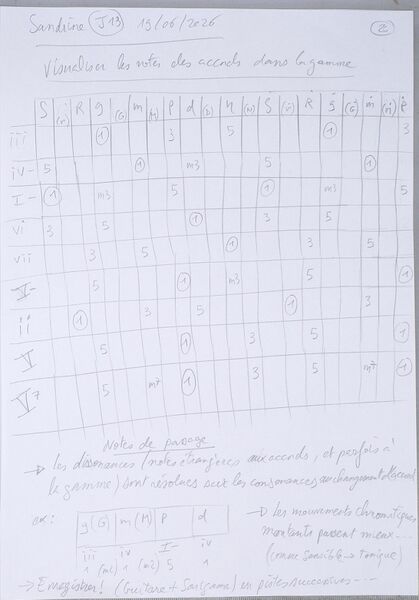 Sandrine J13 19/06/2026 2
Visualiser les notes des accords dans la gamme
S (r) R g (G) m (M) P d (D) n (N) Ṡ (ṙ) Ṙ ġ (Ġ) ṁ (Ṁ) Ṗ
iii 1 3 5 1 3
iv- 5 1 m3 5 1
I- 1 m3 5 1 m3 5
vi 3 5 1 3 5
vii 3 5 1 3 5
V- 5 1 m3 5 1
ii 1 3 5 1 3
V 5 1 3 5 1
V7 5 m7 1 3 5 m7 1
Notes de passage
→ Les dissonances (notes étrangères aux accords, et parfois à
la gamme) sont résolues sur les consonances au changement d'accord
ex: g(G) m(M) P d
iii iv I- iv
1 (m2) 1 (m2) 5 1
→ Les mouvements chromatiques
montants passent mieux...
(comme sensible → tonique)
→ Enregistrer! (Guitare + Sargam) en pistes successives...